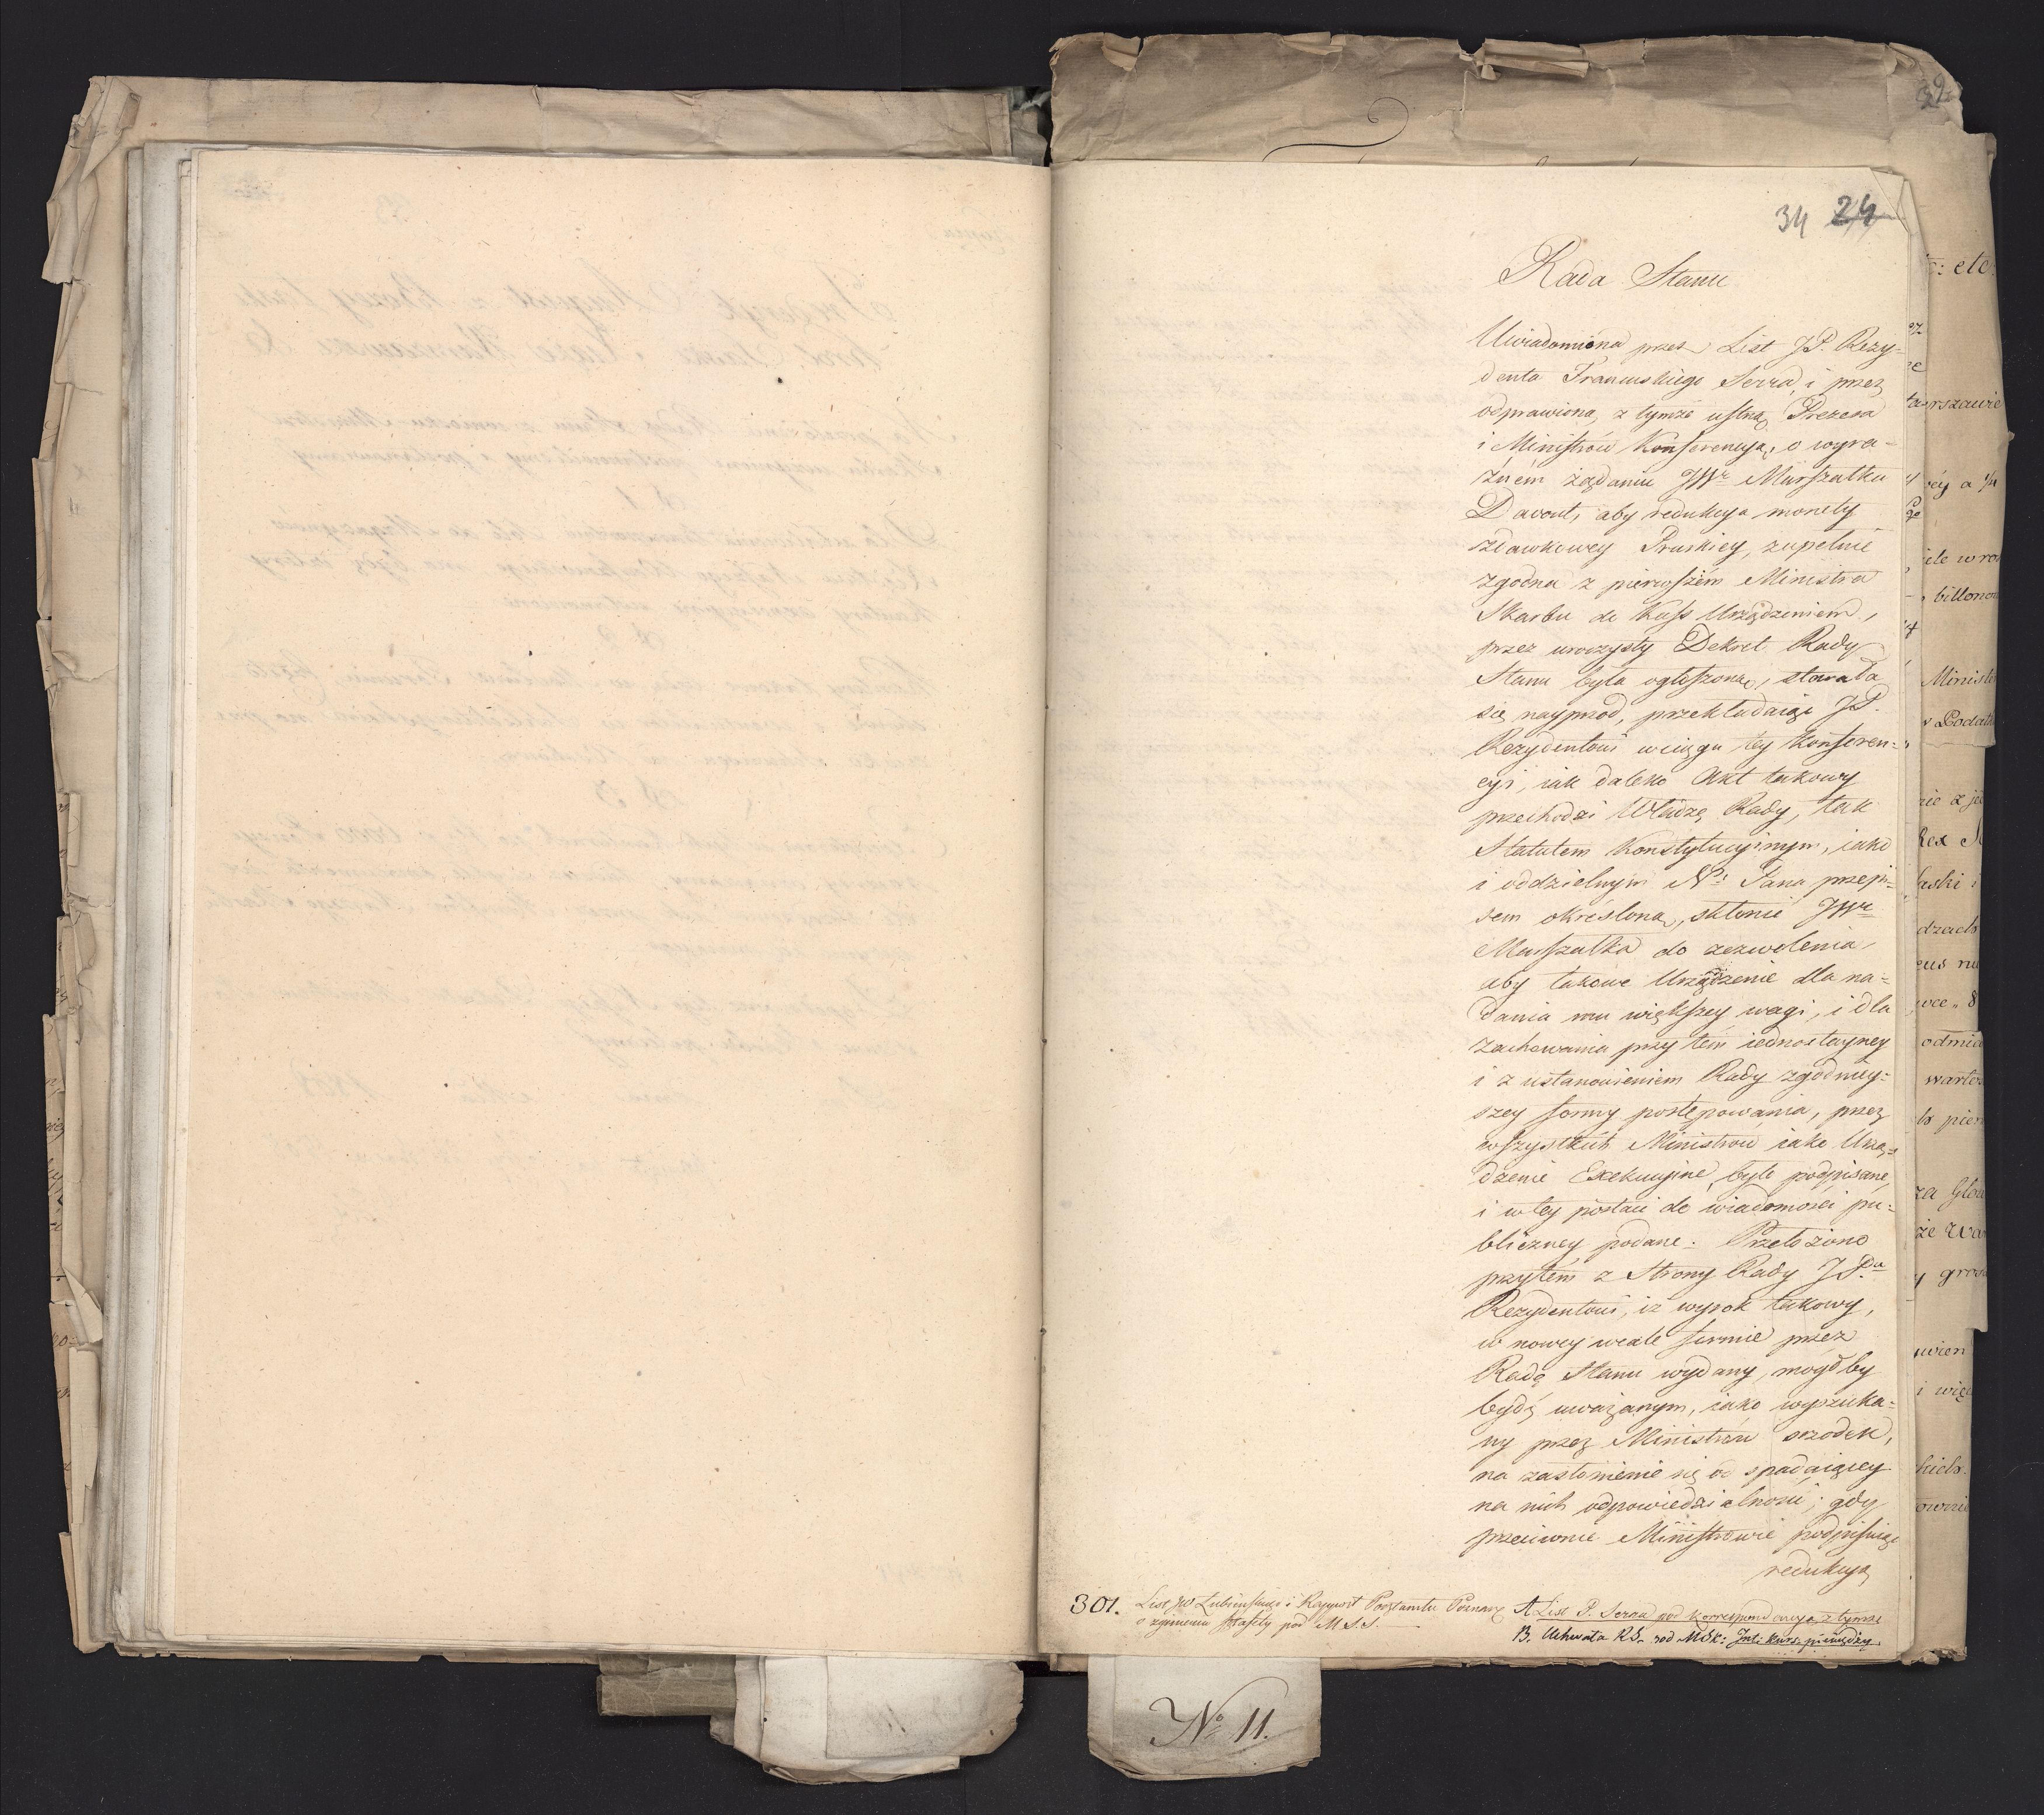 34 24
Rada Stanu
Uwiadomióna przez List JP. Rezy=
denta Francuskiego Serra, i przez
odprawioną z tymże ustną Prezesa
i Ministrów Konferencyą, o wyra=
źném żądaniu JWo Marszałka
Davout, aby redukcya monety
zdawkowey Pruskiey, zupełnie
zgodna z pierwszém Ministra
Skarbu do Kass Urządzeniem,
przez uroczysty Dekret Rady
Stanu była ogłoszoną, starała
się nayprzod, przekładaiąc JP.
Rezydentowi wciągu tey Konferen=
cyi, iak daleko Akt takowy
przechodzi Władzę Rady, tak
Statutem Konstytucyinym, iako
i oddzielnym No Pana przepi=
sem określoną, skłonić JWo
Marszałka do zezwolenia,
aby takowe Urządzenie dla na=
dania mu większey wagi, i dla
zachowania przy tém iednostayney
i z ustanowieniem Rady zgodniey=
szey formy postępowania, przez
wszystkich Ministrow iako Urzą=
dzenie Exekucyine, było podpisane,
i w tey postaci do wiadomości pu=
bliczney podane. Przełożono
przytém z Strony Rady JPdu
Rezydentowi, iż wyrok takowy,
w nowey wcale formie przez
Radę Stanu wydany, mógłby
bydź uważanym, iako wyszuka=
ny przez Ministrów srzodek,
na zasłonienie się od spadaiącey
na nich odpowiedzialności; gdy
przeciwnie Ministrowie podpisuiąc
redukcyą
301. List JW Lubieńskiego i Rapport Pocztamtu Poznań
o zginieniu Sztafety pod M.S.S.
A List P. Serra pod korrespondencyą z tymże
B. Uchwała R.S. pod MSk: Int: kurs. pieniędzy.
No 11.